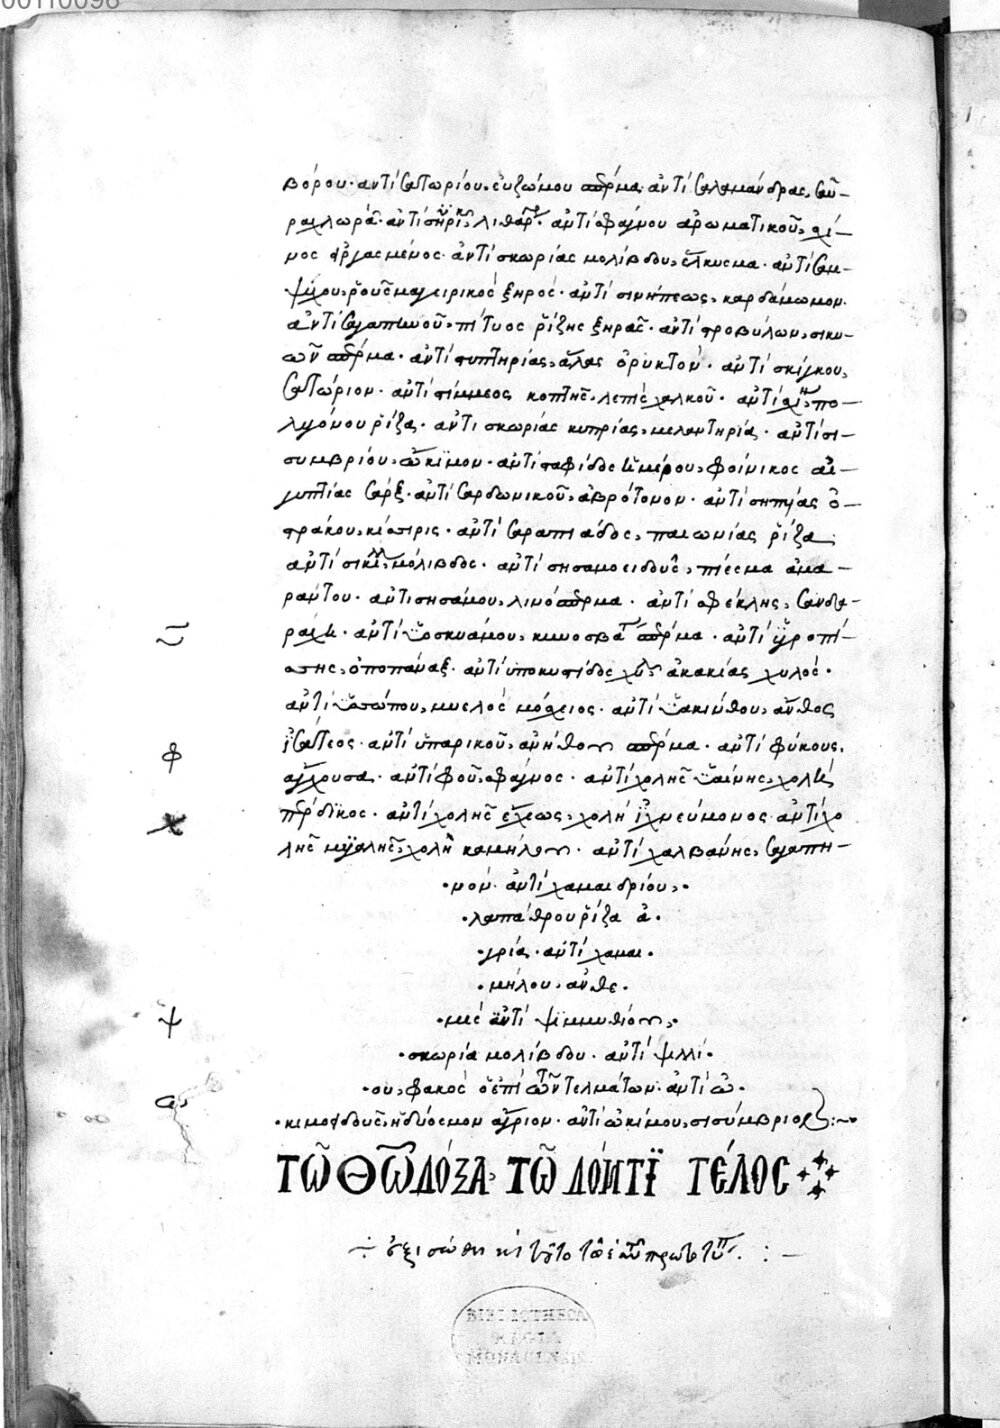 00110098
βόρου· ἀντὶ σατωρίου, εὐζώμου σπέρμα· ἀντὶ σαλαμάνδρας, σαῦ-
ρα χλωρά· ἀντὶ λιθαρ· ἀντὶ σφάγνου ἀρωματικοῦ, οἶ-
νος ἀργασμένος· ἀντὶ σκωρίας μολίβδου, ἕλκυσμα· ἀντὶ σαμ-
ψύχου, ῥοῦς μαγειρικὸς ξηρός· ἀντὶ σινήπεως, καρδάμωμον·
ἀντὶ σαγαπηνοῦ, πίτυος ῥίζης ξηρᾶς· ἀντὶ στροβύλων, σικύ-
ων σπέρμα· ἀντὶ στυπτηρίας, ἅλας ὀρυκτόν· ἀντὶ σκίγκου,
σατώριον· ἀντὶ στίμμεος κοπτῆς, λεπὶς χαλκοῦ· ἀντὶ πο-
λυγόνου ῥίζα· ἀντὶ σκωρίας κυπρίας, μελαντηρία· ἀντὶ σι-
συμβρίου, ὤκϊμον· ἀντὶ σταφίδος ἡμέρου, φοίνικος αἰ-
γυπτίας σάρξ· ἀντὶ σαρδωνικοῦ, ἀβρότονον· ἀντὶ σηπίας ὀ-
στράκου, κίσσιρις· ἀντὶ σεραπιάδος, παιωνίας ῥίζα
ἀντὶ μόλιβδος· ἀντὶ σησαμοειδοῦς, πίεσμα ἀμα-
ράντου· ἀντὶ σησάμου, λινόσπερμα· ἀντὶ σφέκλης, σανδα-
ράχη· ἀντὶ ὑοσκυάμου, κυνοσβάτου σπέρμα· ἀντὶ ὑγροπί-
σσης, ὀποπάναξ· ἀντὶ ὑποκυστίδος χυλοῦ ἀκακίας χυλός·
ἀντὶ ὑσσώπου, μυελὸς μόσχειος· ἀντὶ ὑακίνθου, ἄνθος
ἰσάτεος· ἀντὶ ὑπαρικοῦ, ἀνήθου σπέρμα· ἀντὶ φύκους,
ἄγχουσα· ἀντὶ φοῦ, σφάγνος· ἀντὶ χολῆς ὑαίνης, χολὴ
πέρδϊκος· ἀντὶ χολῆς ἔχεως, χολὴ ἰχνεύμονος· ἀντὶ χο
λῆς μυγαλῆς, χολὴ καμήλου· ἀντὶ χαλβάνης, σαγαπη-
·νόν· ἀντὶ χαμαιδρίου,·
·λαπάθρου ῥίζα ἀ·
·γρία· ἀντὶ χαμαι·
·μήλου, ἀνθε·
·μίς ἀντὶ ψϊμμυθίου,·
·σκωρία μολίβδου· ἀντὶ ψυλλί·
·ου, φακὸς ὁ ἐπὶ τῶν τελμάτων· ἀντὶ ὠ·
·κιμοειδοῦς, ἡδύοσμον ἄγριον· ἀντὶ ὠκίμου, σισύμβριον:~
υ
φ
χ
ψ
ω
ΤΩ ΘΩ ΔΟΞΑ· ΤΩ ΔΟΝΤΪ ΤΕΛΟΣ
ἐξισώθη καὶ τοῦτο
BIBLIOTHECA
REGIA
MONACENSIS